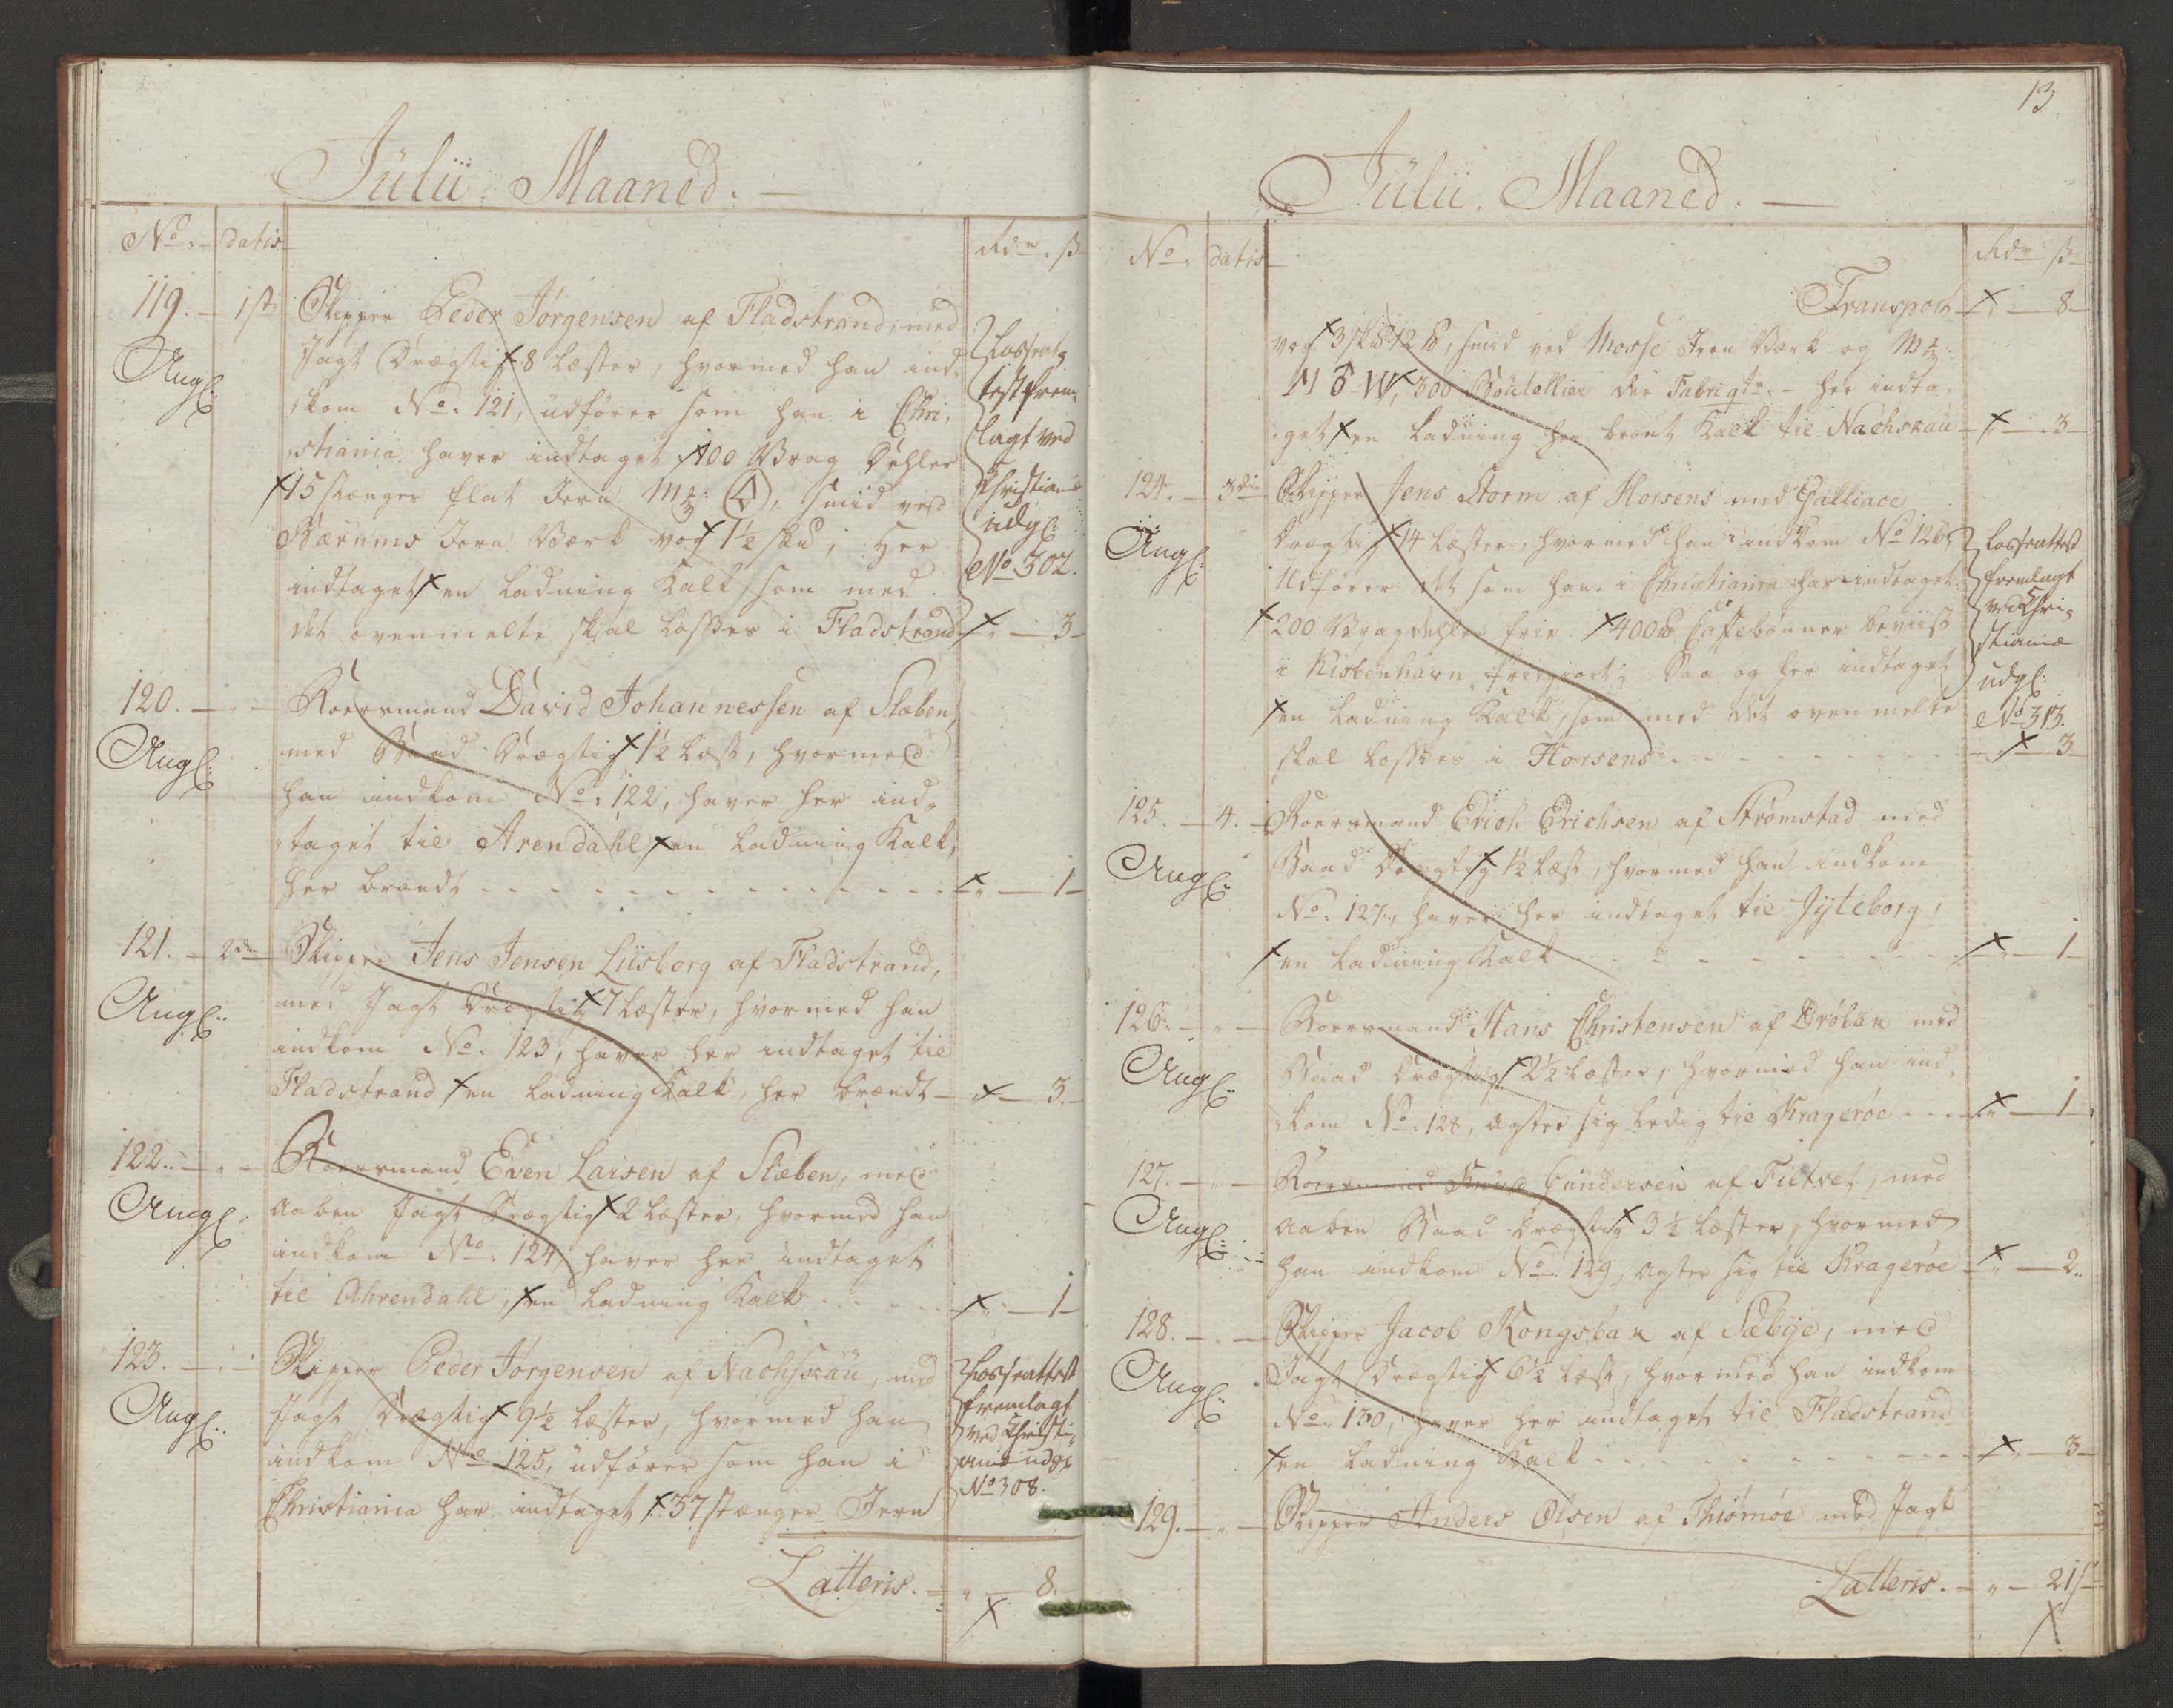 Julii Maaned.
No. datis Rdr. ß
119. 1ste Skipper Peder Jørgensen af Fladstrand, med
Jagt Drægtig 8 Læster, hvormed han ind-
Angl: kom No. 121, udfører som han i Chri-
stiania haver indtaget 100 Vrag Dehler
15 stænger flat Jern Mz:, smid ved
Bærums Jern Værk vog 1½ Sk℔, Her
indtaget en Ladning Kalk som med
det ovenmelte skal Losses i Fladstrand 3
Losseat-
test frem-
lagt ved
Christiania
udgl:
No 302.
120. Roersmand David Johannessen af Stæben,
Angl: med Baad Drægtig 1½ Læst, hvormed
han indkom No. 122, haver her ind-
taget til Arendahl en Ladning Kalk,
her brændt 1
121. 2den Skipper Jens Jensen Liisborg af Fladstrand,
Angl: med Jagt Drægtig 7 Læster, hvormed han
indkom No. 123, haver her indtaget til
Fladstrand en Ladning Kalk, her brændt 3.
122. Roersmand Even Larsen af Stæben, med
Angl: aaben Jagt Drægtig 2 Læster, hvormed han
indkom No. 124, haver her indtaget
til Ahrendahl, en Ladning Kalk 1
123. Skipper Peder Jørgensen af Nachskau, med
Angl: Jagt Drægtig 9½ Læster, hvormed han
indkom No 125, udfører som han i
Christiania har indtaget 37 stænger Jern
Losseattest
fremlagt
ved Christi-
ania udgl
No 308.
Latteris. 8.
13
Julii Maaned.
No. datis Rdr ß
Transport 8
vog 3 Sk℔ 12 ℔, smid ved Mosse Jern Værk og Mz
300 Boutellier Fabriqt. her indta-
get en Ladning her brænt Kalk til Nachskau 3
124. 3die Skipper Jens Storm af Horsens med Galliace
Angl: Drægtig 14 Læster, hvormed han indkom No 126,
Udfører det som han i Christiania har indtaget
200 Vragdehler frie. 400 ℔ Caffebønner beviist
i Kiøbenhavn frigiort; Saa og her indtaget
en Ladning Kalk, som med det ovenmelte
skal Losses i Horsens 3
Losseattest
fremlagt
ved Chri-
stiania
udgl:
No 313.
125. 4. Roersmand Erich Erichsen af Strømstad med
Angl: Baad Drægtig 1½ Læst, hvormed han indkom
No. 127, haver her indtaget til Jyteborg,
en Ladning Kalk 1
126. Roersmand Hans Christensen af Drøbak med
Angl: Baad Drægtig 2½ Læster, hvormed han ind-
kom No. 128, agter sig ledig til Kragerøe 1
127. Roersmand Knud Gundersen af Tietset, med
Angl: aaben Baad Drægtig 3½ Læster, hvormed
han indkom No. 129, agter sig til Kragerøe 2
128. Skipper Jacob Kongsbak af Sæbye, med
Angl: Jagt Drægtig 6½ Læst, hvormed han indkom
No. 130, haver her indtaget til Fladstrand
en Ladning Kalk 3
129. Skipper Anders Olsen af Thiømøe med Jagt
Latteris. 21